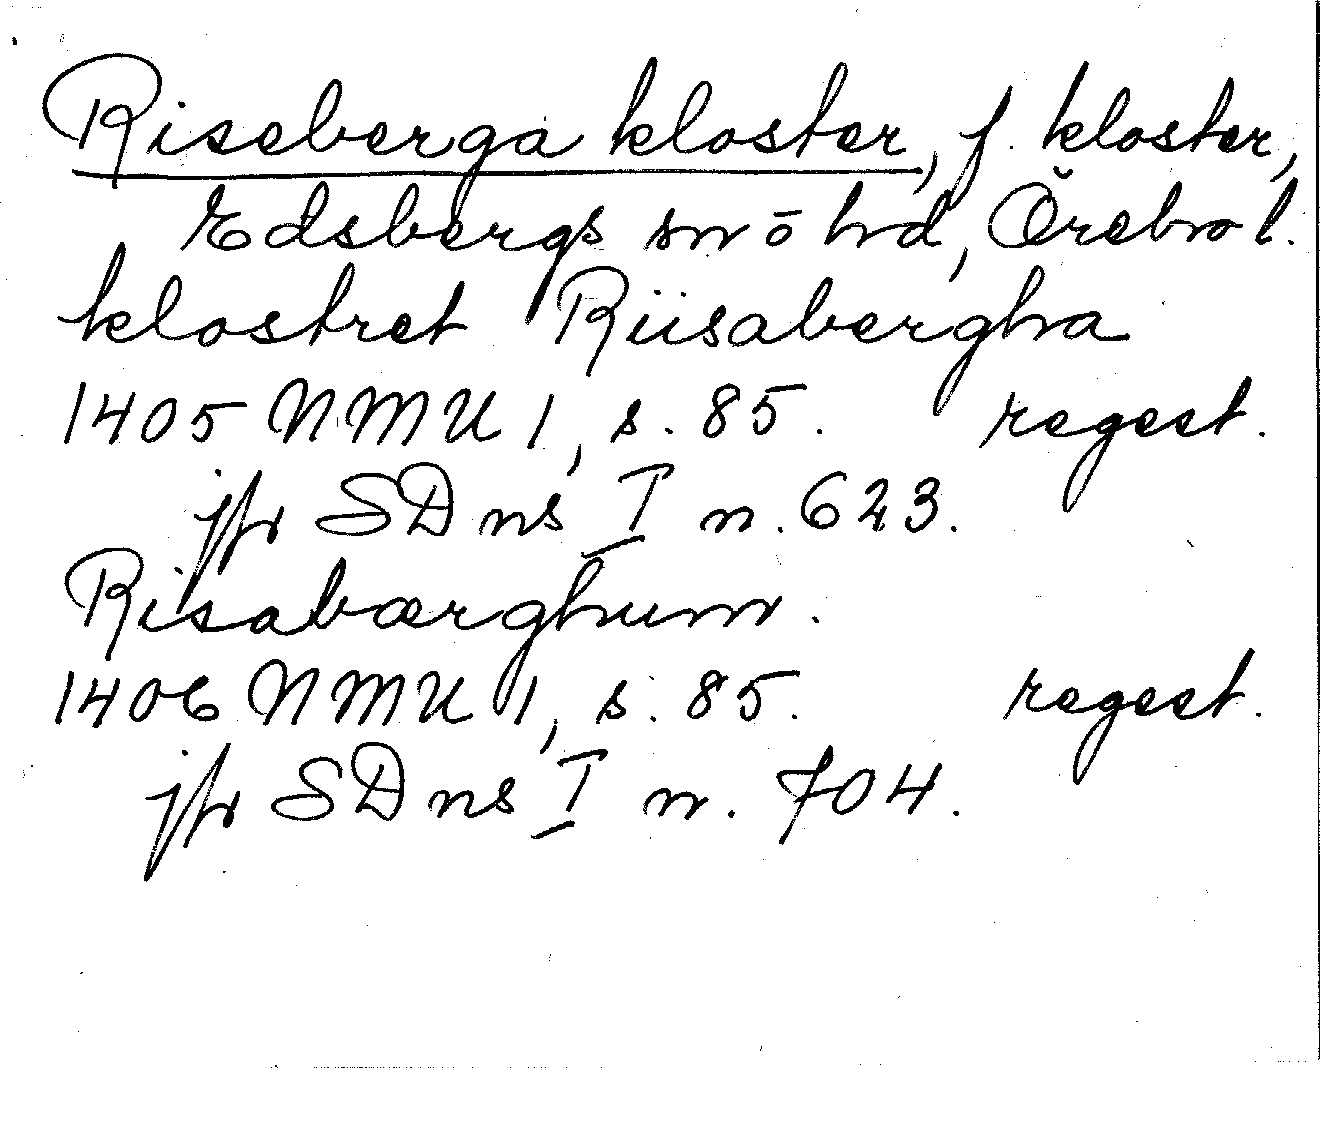 Riseberga kloster, f. kloster,
Edsbergs sn o hd, Örebro l.
klostret Riisabergha
1405 NMU 1, s. 85. regest.
jfr SD ns I n. 623.
Risabærghum.
1406 NMU 1, s. 85. regest.
jfr SD ns I n. 704.